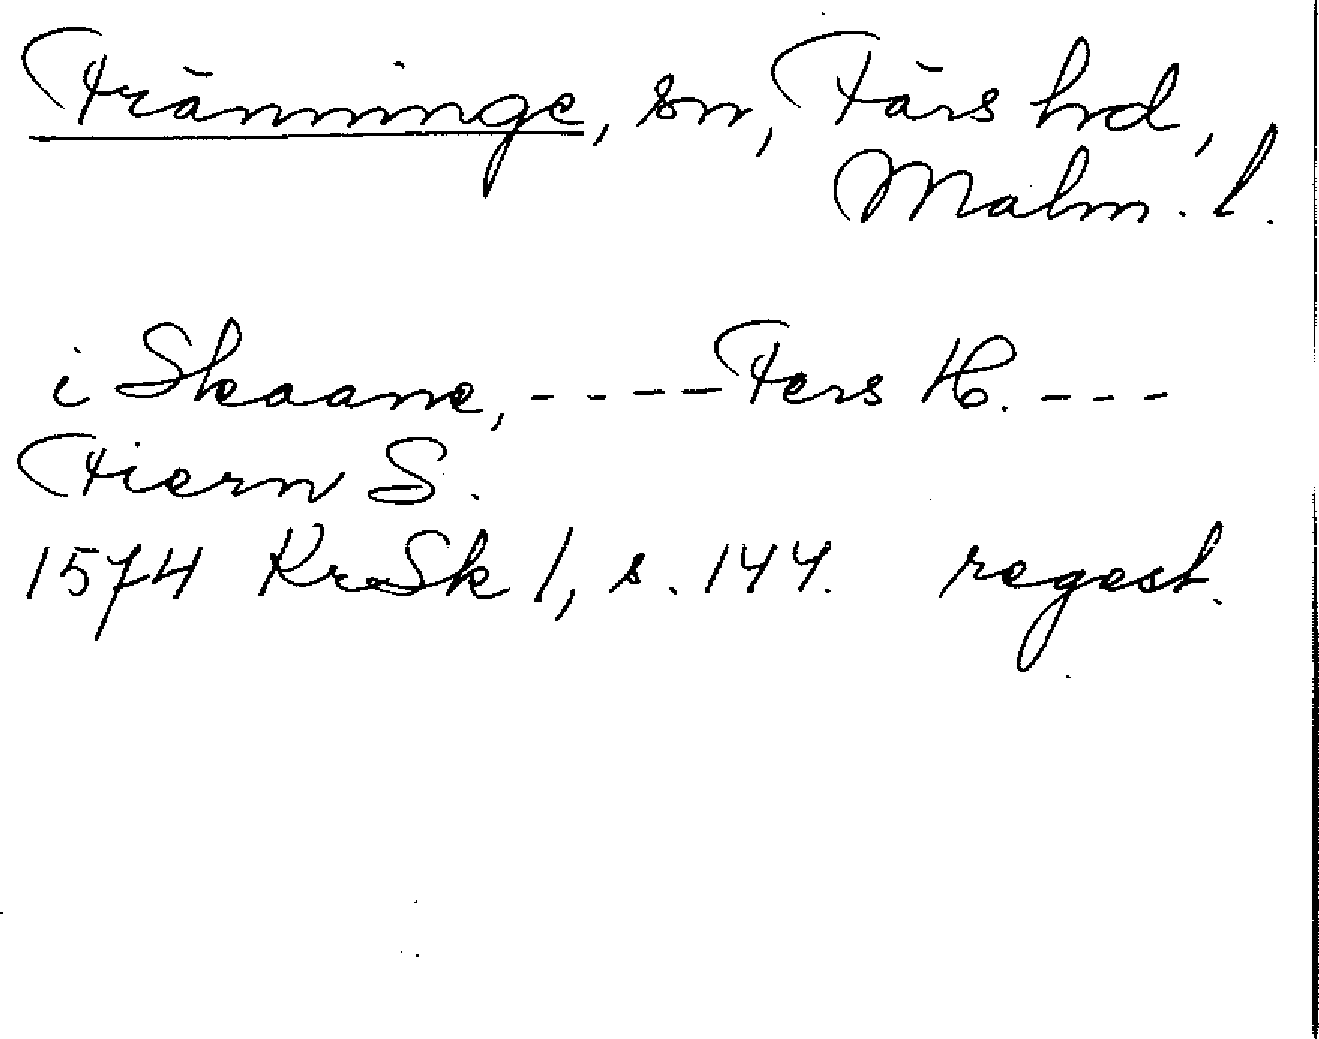 Fränninge, sn, Färs hrd,
Malm. l.
i Skaane, ---- Fers H. ---
Fiern S.
1574 KrSk 1, s. 144. regest.